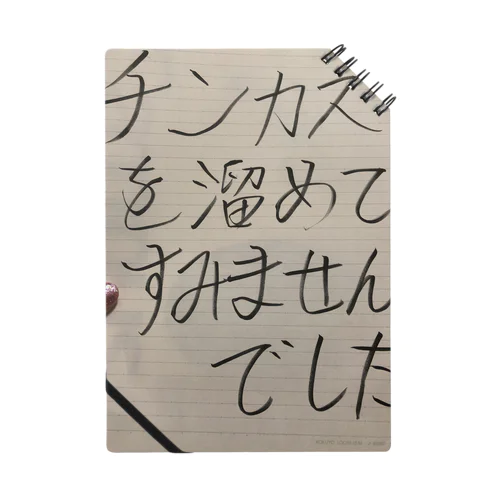 チンカス
を溜めて
すみません
でした